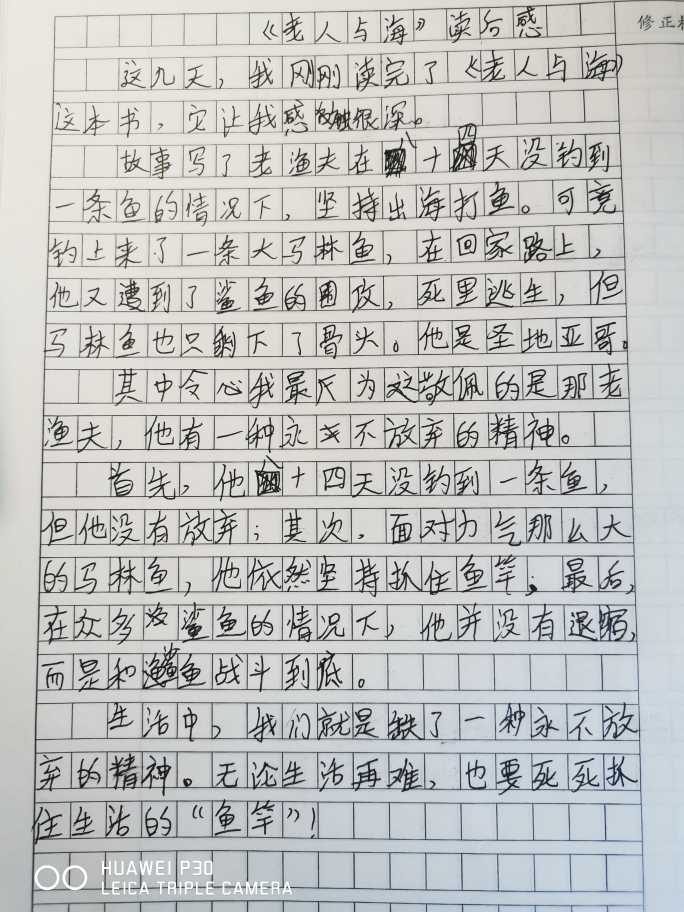 《老人与海》读后感
修正
这几天，我刚刚读完了《老人与海》
这本书，它让我感触很深。
故事写了老渔夫在八十四天没钓到
一条鱼的情况下，坚持出海打鱼。可竟
钓上来了一条大马林鱼，在回家路上，
他又遭到了鲨鱼的围攻，死里逃生，但
马林鱼也只剩下了骨头。他是圣地亚哥。
其中令我最为敬佩的是那老
渔夫，他有一种永不放弃的精神。
首先，他八十四天没钓到一条鱼，
但他没有放弃；其次，面对力气那么大
的马林鱼，他依然坚持抓住鱼竿；最后，
在众多鲨鱼的情况下，他并没有退缩，
而是和鲨鱼战斗到底。
生活中，我们就是缺了一种永不放
弃的精神。无论生活再难，也要死死抓
住生活的“鱼竿”！
HUAWEI P30
LEICA TRIPLE CAMERA